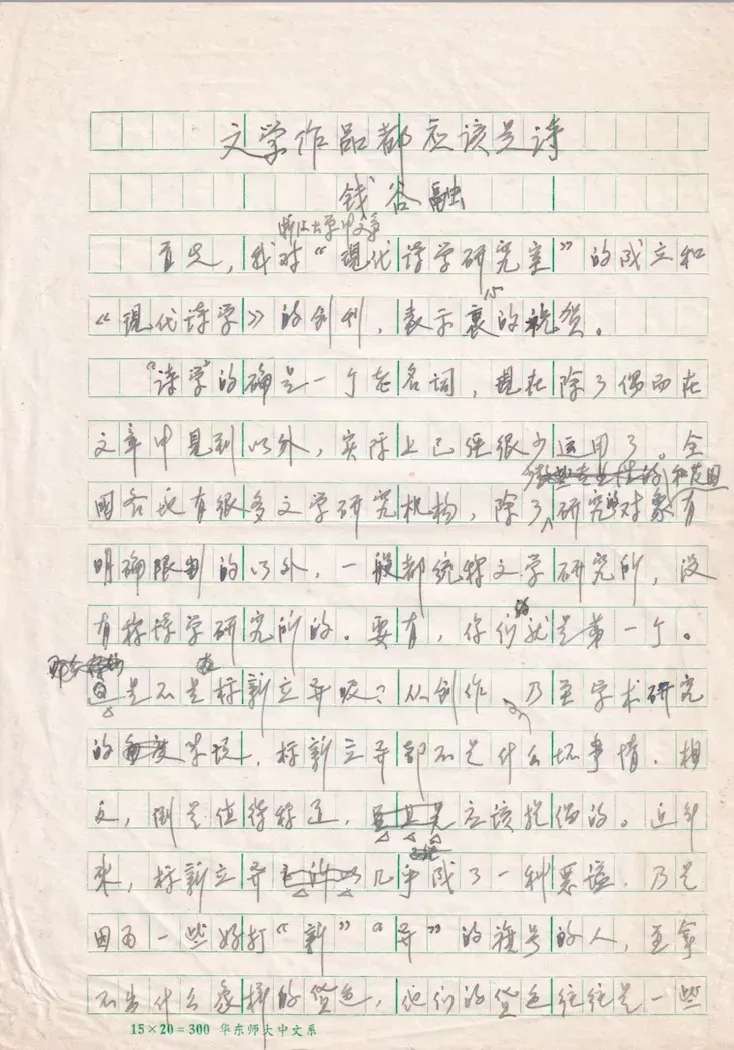 文学作品都应该是诗
钱谷融
浙江大学中文系
首先，我对“现代诗学研究室”的成立和
《现代诗学》的创刊，表示衷的祝贺。
“诗学”的确是一个老名词，现在除了偶而在
文章中见到以外，实际上已经很少运用了。全
和范围
国各地有很多文学研究机构，除了研究对象有
明确限制的以外，一般都统称文学研究所，没
有称诗学研究所的。要有，你们就是第一个。
是不是标新立异呢？从创作、乃至学术研究
的来说，标新立异都不是什么坏事情，相
反，倒是值得称道，应该提倡的。近年
来，标新立异几乎成了一种恶谥，乃是
因为一些好打“新”“异”的旗号的人，并拿
不出什么象样的货色，他们的货色往往是一些
15×20=300 华东师大中文系